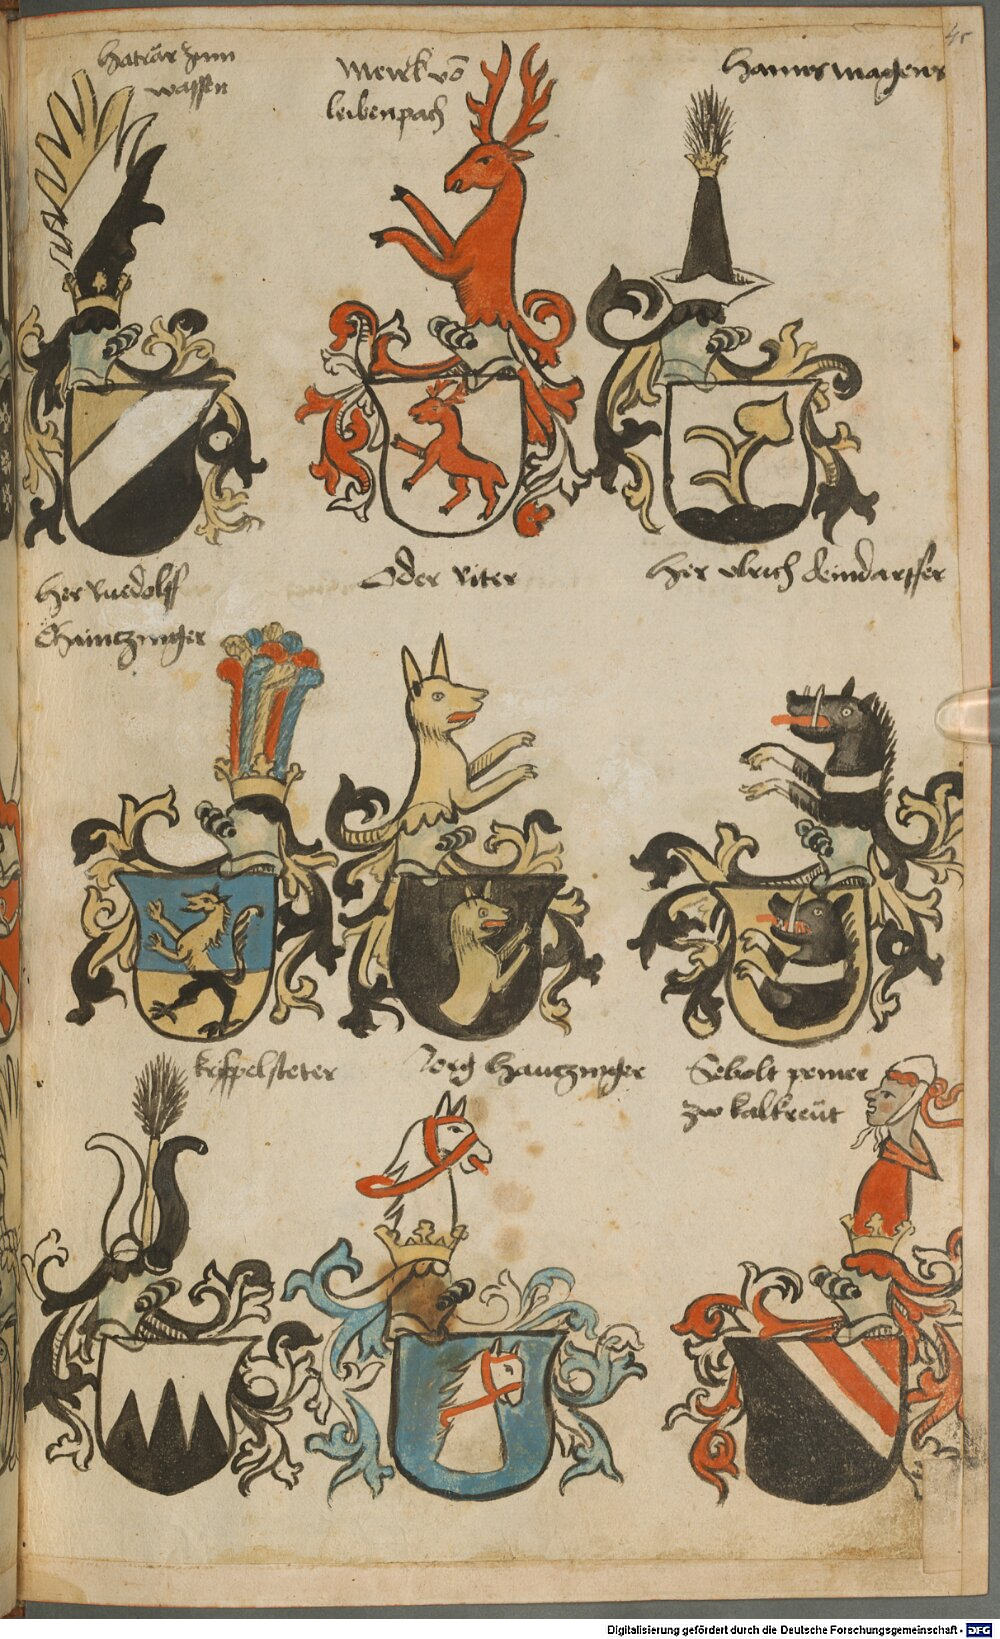 haträr zum
wassen
Merkl vō
leibenpach
Hanns magens
45
Her Ruedolff
Chaintzinger
Oder Riter
Her Ulrich Leindarffer
Krispelsteter
Jorg Hautzinger
Sebolt premer
zw kalkreüt
Digitalisierung gefördert durch die Deutsche Forschungsgemeinschaft - DFG